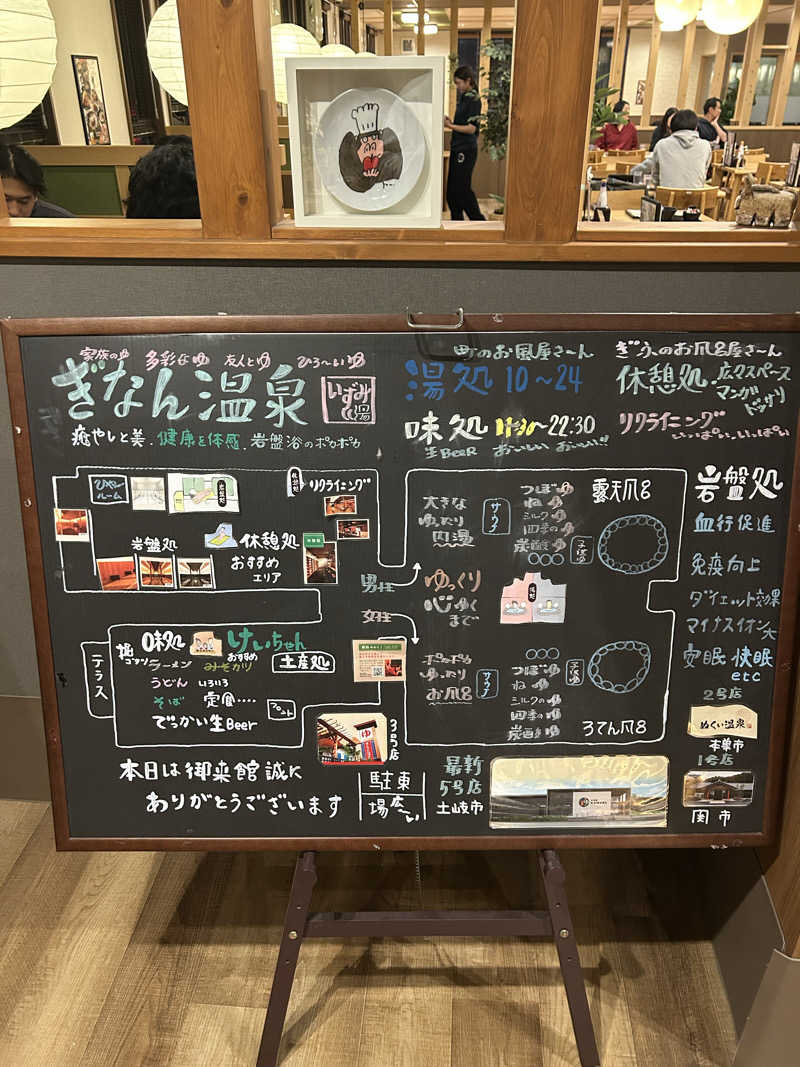 家族のゆ 多彩なゆ 友人とゆ ひろ〜いゆ
ぎなん温泉
いずみの湯
癒やしと美・健康を体感・岩盤浴のポカポカ
町のお風呂屋さーん
湯処 10〜24
味処 11:30〜22:30
生BeeR おいしい おいしい!!
ぎふのお風呂屋さーん
休憩処・広々スペース
マンガ
ドッサリ
リクライニング
いっぱい・いっぱい
ルーム
岩盤処
休憩処
リクライニング
岩盤処
休憩処
おすすめ
エリア
男性
女性
大きな
ゆったり
内湯
サウナ
つぼゆ
ねゆ
ミルクゆ
四季のゆ
炭酸ゆ
露天風呂
ゆっくり
心ゆく
まで
ポカポカ
ゆったり
お風呂
サウナ
つぼゆ
ねゆ
ミルクのゆ
四季のゆ
炭酸ゆ
ろてん風呂
テラス
味処
けいちゃん
おすすめ
ラーメン
みそカツ
土産処
うどん
いろいろ
そば
定食‥‥
でっかい生Beer
フロント
ゆ
3号店
本日は御来館誠に
ありがとうございます
駐車
場
最新
5号店
土岐市
岩盤処
血行促進
免疫向上
ダイエット効果
マイナスイオン大
安眠 快眠
etc
2号店
ぬくい温泉
本巣市
1号店
関市